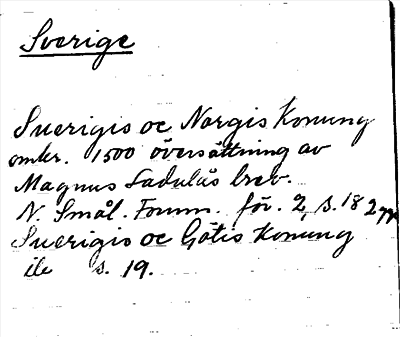 Sverige
Suerigis oc Norgis Konung
omkr. 1500 översättning av
Magnus Ladulås brev.
N. Smål. Fornm. för. 2, s. 18
Suerigis oc Götis Konung
ile s. 19.